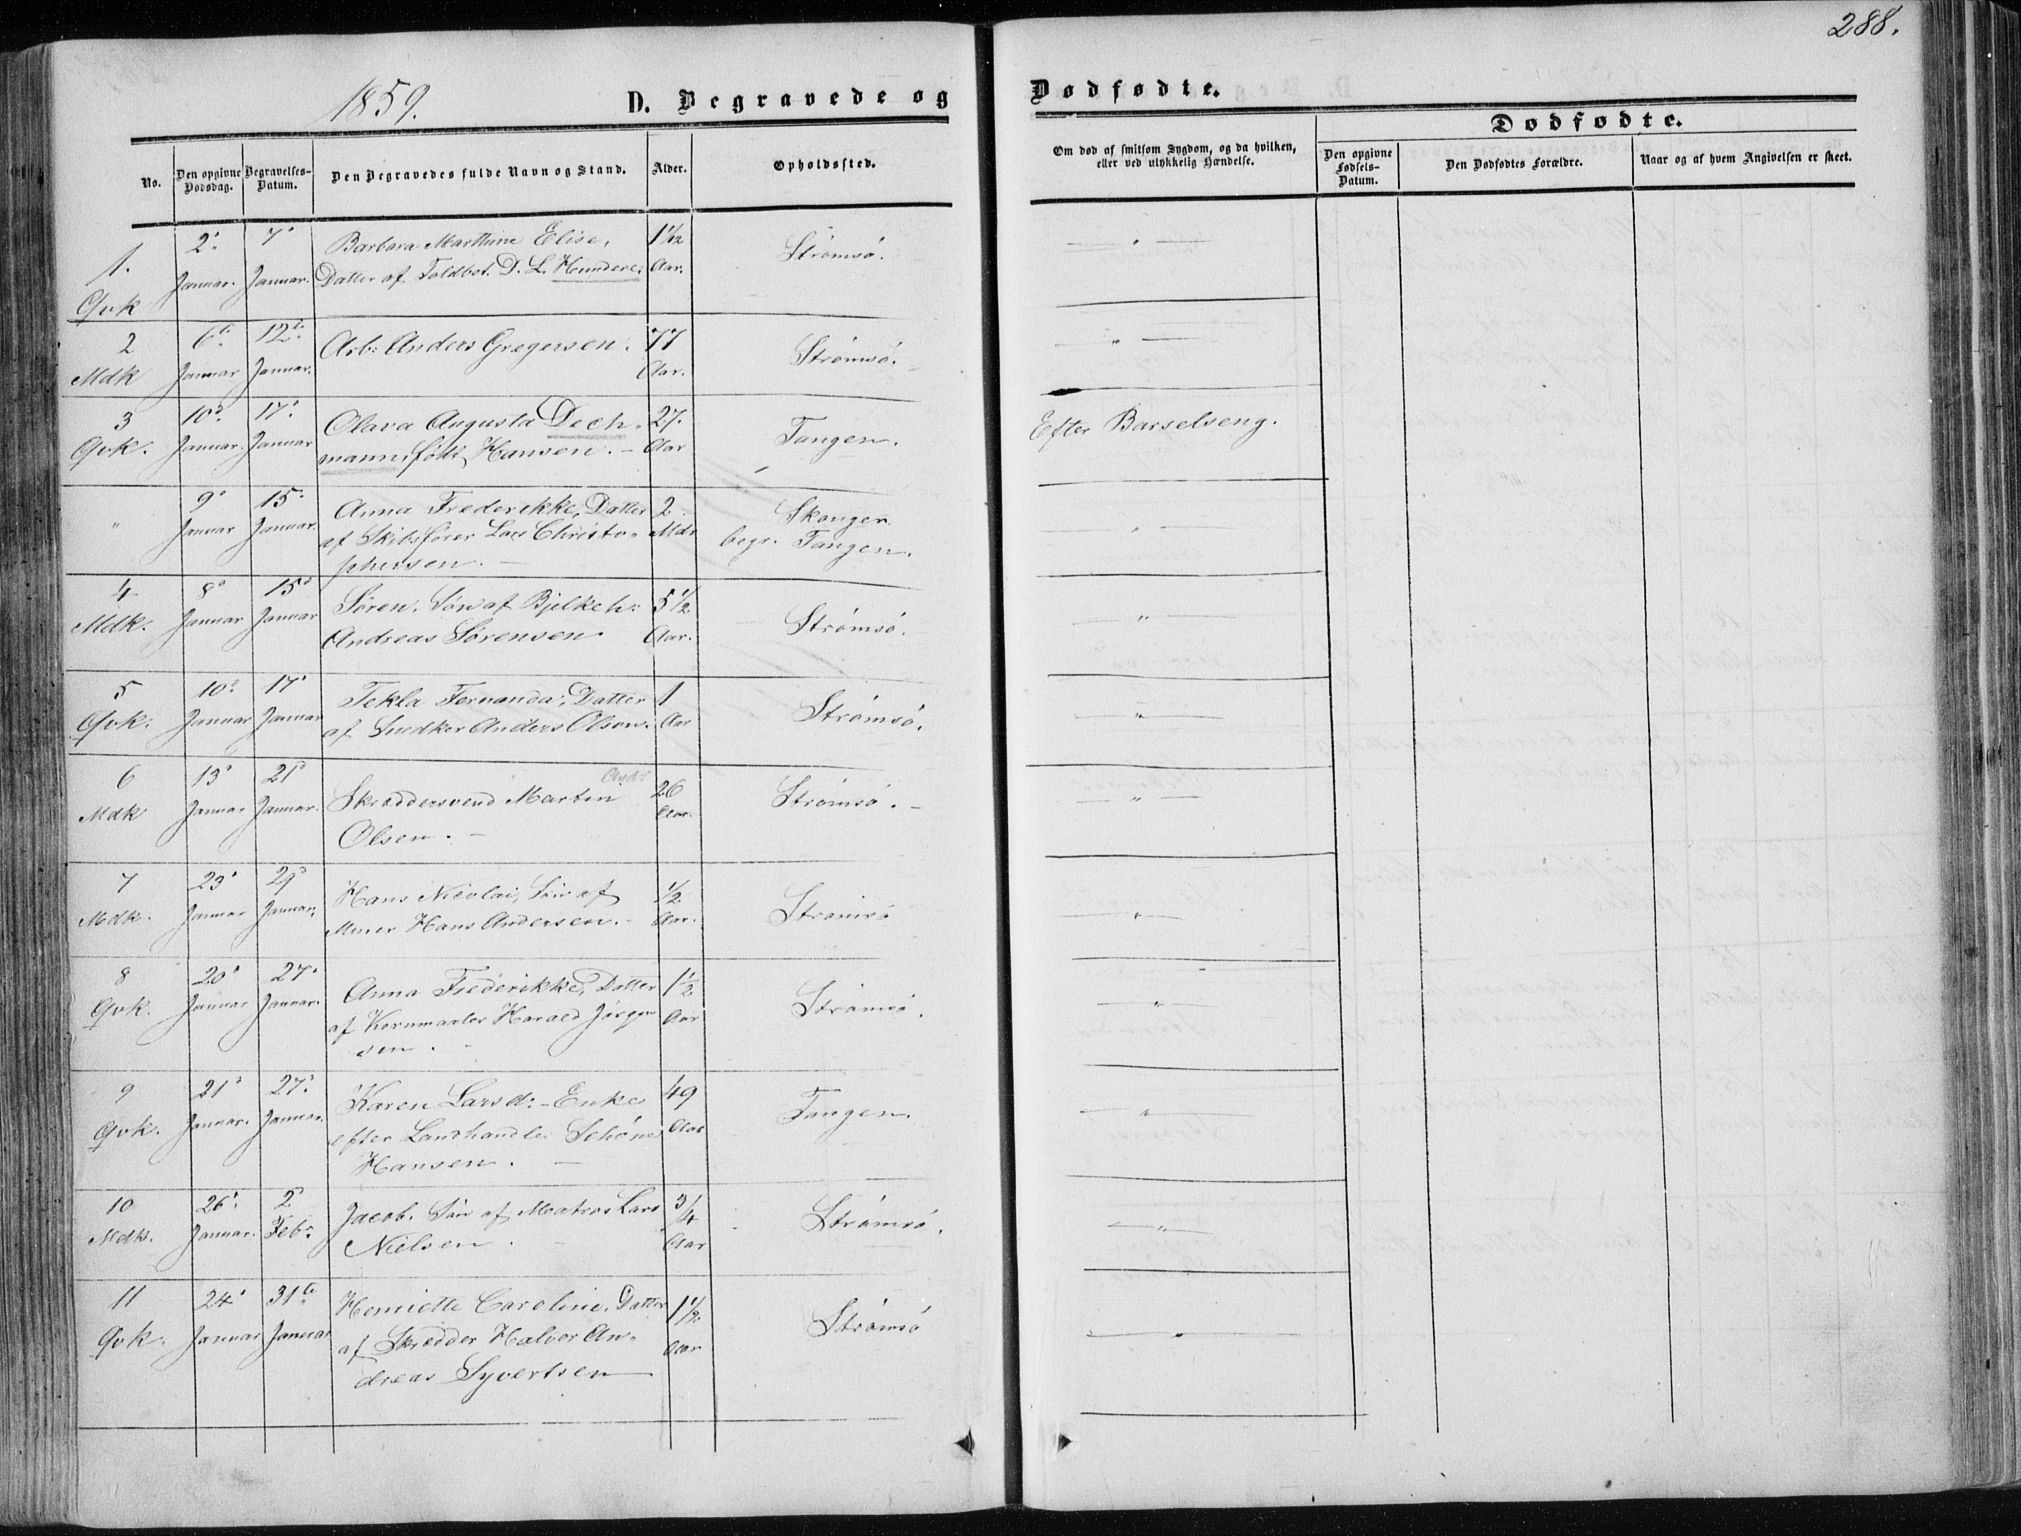 288.
1859.
D. Begravede og
Dødfødte.
No.
Den opgivne Dødsdag.
Begravelses-Datum.
Den Begravedes fulde Navn og Stand.
Alder.
Opholdssted.
Om død af smitsom Sygdom, og da hvilken,
eller ved ulykkelig Hændelse.
Dødfødte.
Den opgivne Fødsels-Datum.
Den Dødfødtes Forældre.
Naar og af hvem Angivelsen er skeet.
1. 2. 7. Barbara Marthine Elise, 1 1/2 Strømsø. "
Qvk Januar. Januar. Datter af Toldbet. D. L. Hundere. Aar.
2 6te 12te Arb: Anders Gregersen. 77 Strømsø. "
Mdk Januar Januar. Aar.
3 10. 17. Olava Augusta Dech- 27. Tangen. Efter Barselseng.
Qvk. Januar. Januar mann født Hansen. Aar
" 9. 15. Anna Frederikke, Datter 2 Skanger "
Januar Januar. af Skibsfører Lars Christo- Mdr begr. Tangen.
phersen.
4 8. 15. Søren, Søn af Bjelkeh: 5 1/2 Strømsø. "
Mdk. Januar Januar Andreas Sørensen Aar.
5 10. 17. Tekla Fernanda, Datter 1 Strømsø. "
Qvk. Januar Januar af Snedker Anders Olsen. Aar
6 13. 21. Skræddersvend Martin Andr. 26 Strømsø. "
Mdk Januar Januar. Olsen. Aar.
7 23. 29. Hans Nicolai, Søn af 1/2 Strømsø "
Mdk. Januar Januar. Murer Hans Andersen. Aar.
8 20. 27. Anna Frederikke, Datter 1 1/2 Strømsø. "
Qvk. Januar Januar. af Kornmaaler Harald Jørgen Aar
sen.
9 21. 27. Karen Larsd: Enke 49 Tangen. "
Qvk. Januar. Januar. efter Landhandle Schøne Aar
Hansen.
10 26. 2 Jacob, Søn af Matros Lars 3/4 Strømsø. "
Mdk. Januar. Febr. Nielsen. Aar
11 24. 31te Henriette Caroline, Datter 1 1/2 Strømsø "
Qvk. Januar Januar af Skrædder Halvor An- Aar
dreas Syvertsen